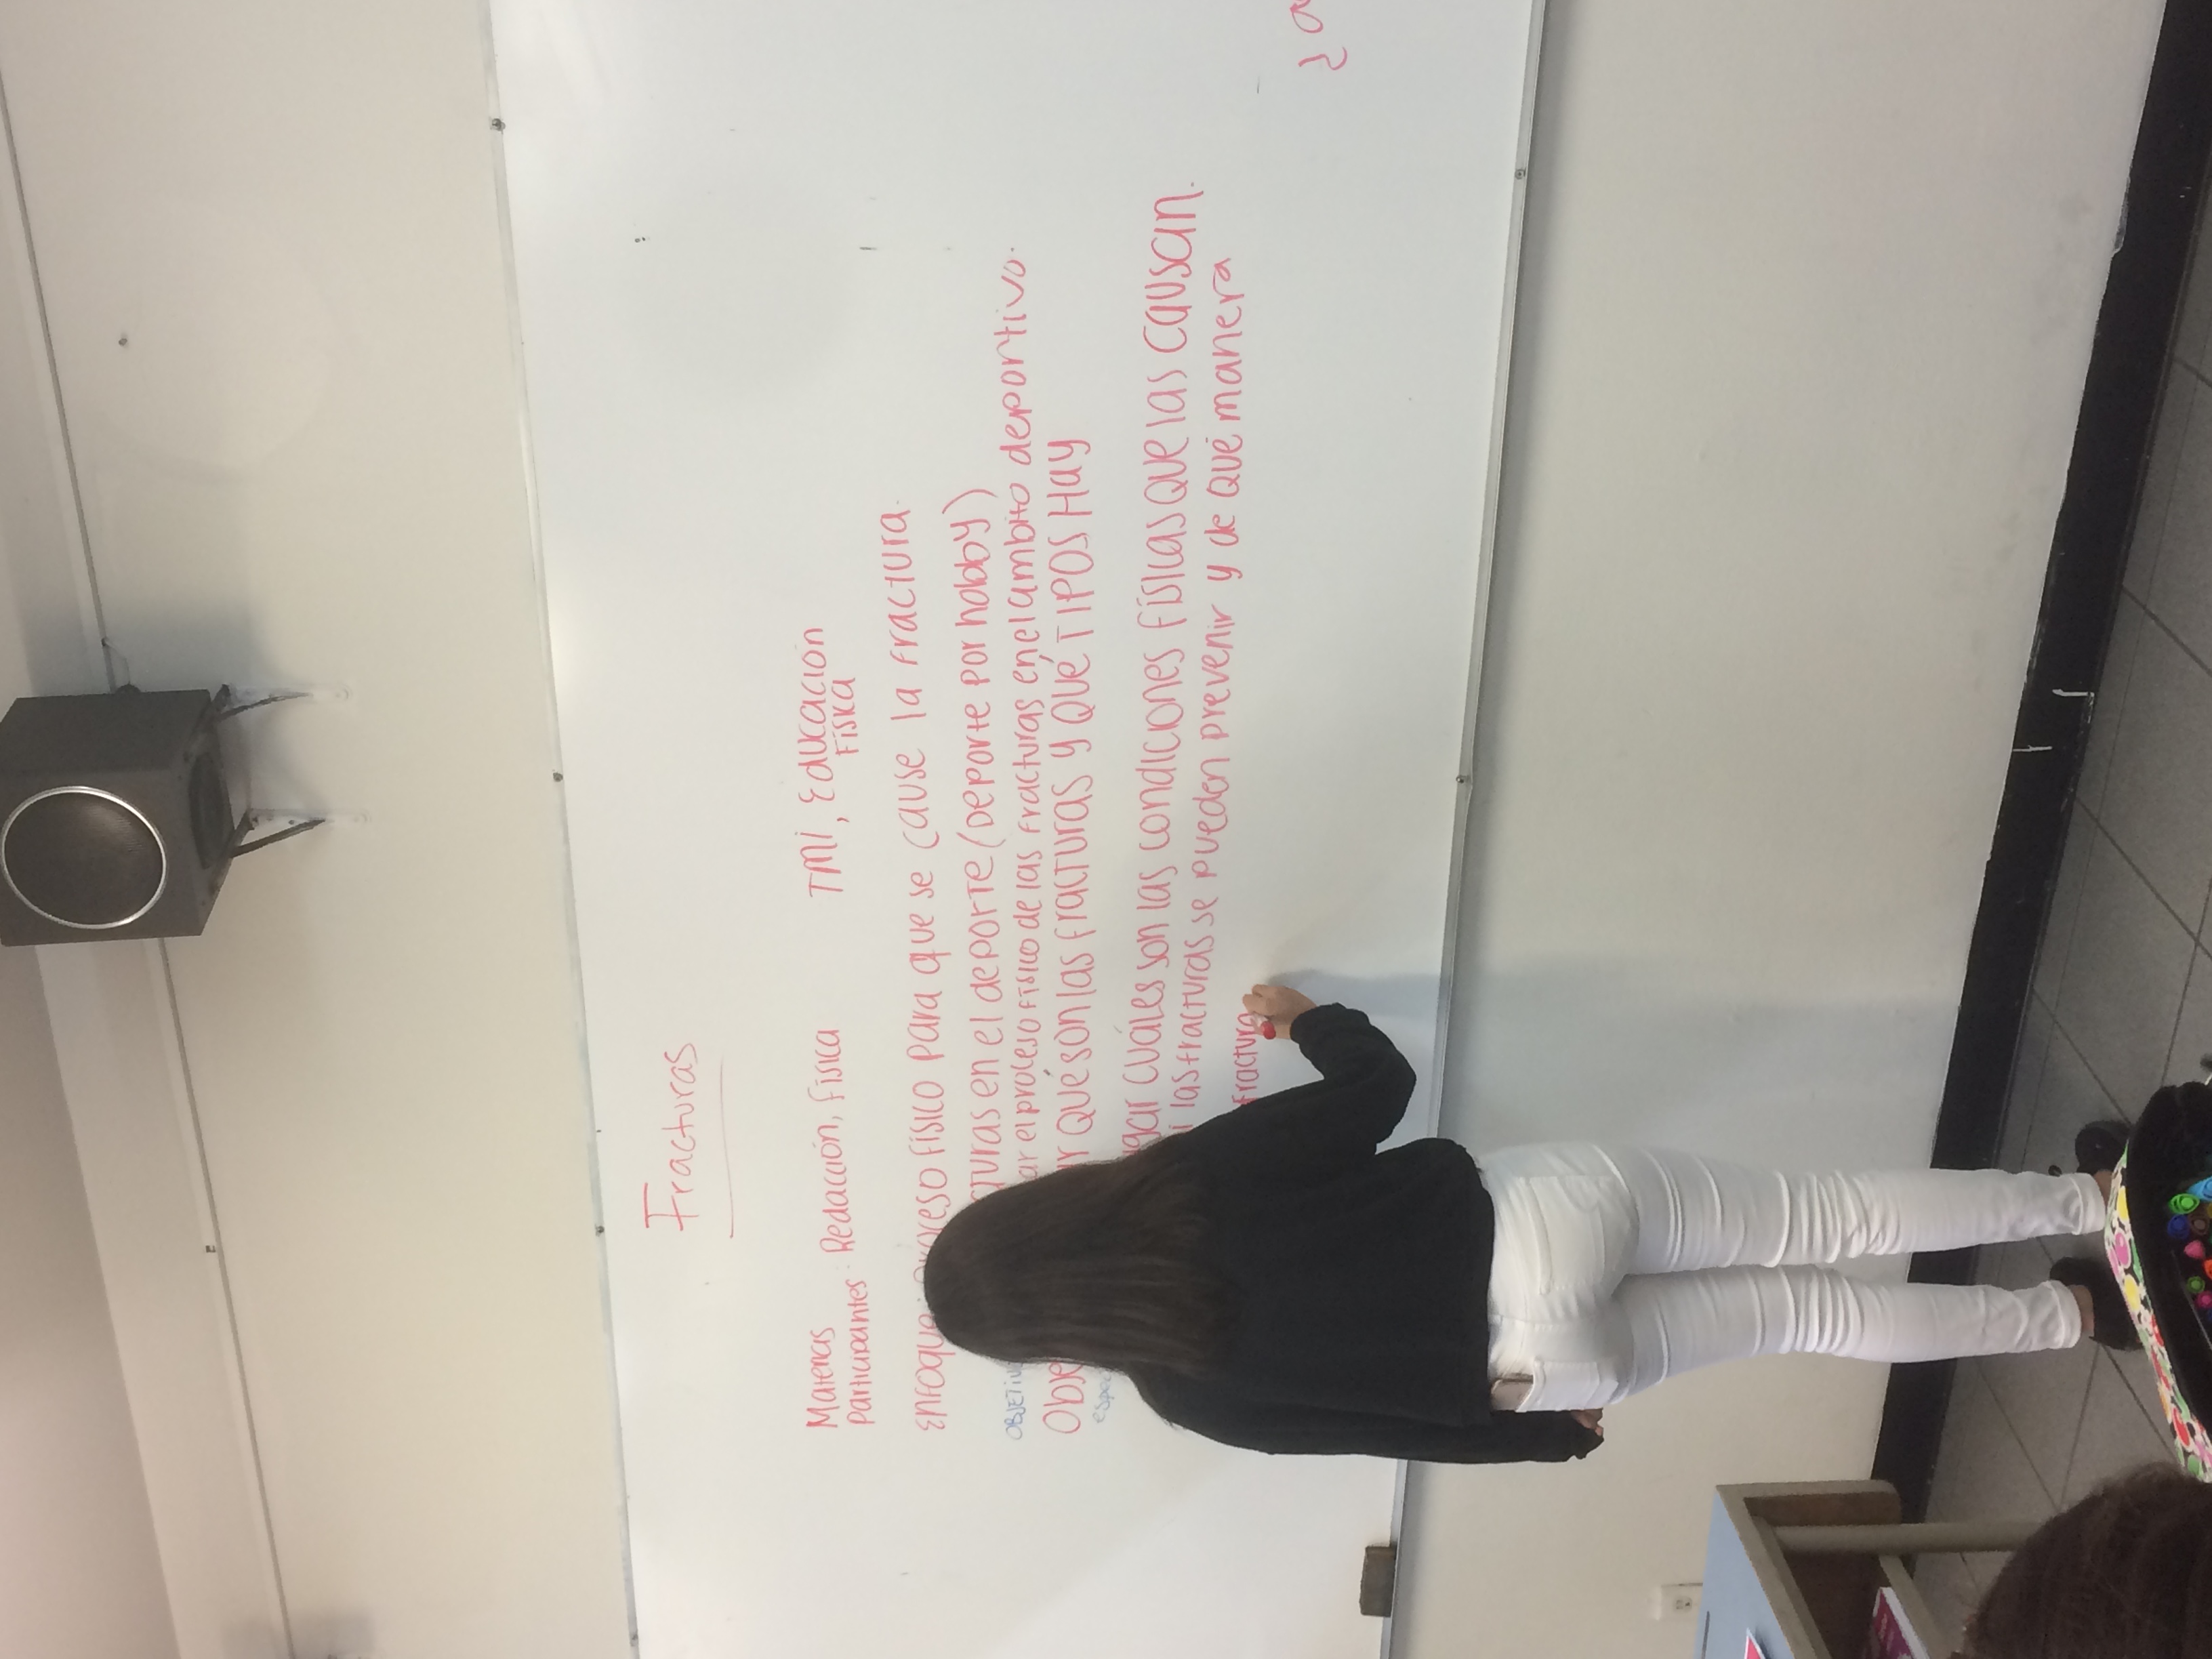 Fracturas
Materias
Participantes: Redacción, Física
TMI, Educación
Física
Enfoque: proceso físico para que se cause la fractura.
turas en el deporte (Deporte por hobby)
OBJETIV
ar el proceso físico de las fracturas en el ambito deportivo.
Obje
r Qué son las fracturas y Qué TIPOS Hay
espec
gar cuáles son las condiciones físicas que las causan.
i las fracturas se pueden prevenir y de Qué manera
fractura
¿a